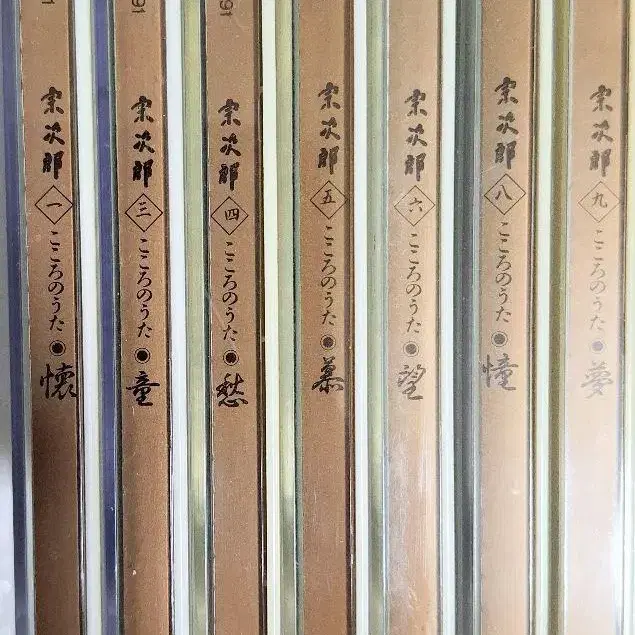 宗次郎 一 こころのうた 懐
宗次郎 三 こころのうた 童
宗次郎 四 こころのうた 愁
宗次郎 五 こころのうた 慕
宗次郎 六 こころのうた 望
宗次郎 八 こころのうた 憧
宗次郎 九 こころのうた 夢